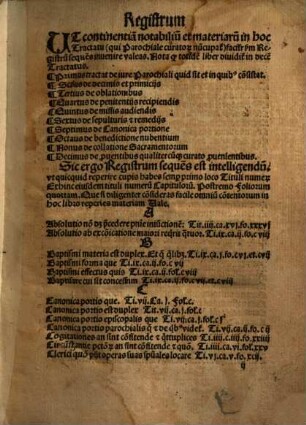 Registrum
UT continentiā notabiliū et materiarū in hoc
Tractatu (qui Parochiale curatoꝝ nūcupat̄) fact̄ rm̄ Re-
gistrū sequēs inuenire valeas. Nota ꝙ totalis liber diuidit̄ in decē
Tractatus.
¶ Primus tractat̄ de iure Parochiali quid sit et in quibꝰ cōsistat.
¶ Scd̄us de decimis et primicijs
¶ Tertius de oblationibus
¶ Quartus de penitentijs recipiendis
¶ Quintus de missis audiendis
¶ Sextus de sepulturis et remedijs
¶ Septimus de Canonica portione
¶ Octauus de benedictione nubentium
¶ Nonus de collatione Sacramentorum
¶ Decimus de prouentibus qualiter cū eis curato prouenientibus.
Sic ergo Registrum sequēs est intelligendū,
vt quicquid reperire cupis habes semp primo loco Tituli numeꝝ
Ex hinc eiusdem tituli numerū Capituloꝝ. Postremo Foliorum
quotam. Que si diligenter cōsiderās facile omniū cōtentorum in
hoc libro reperies materiam Vale.
A
Absolutio nō dꝫ ꝓcedere pn̄ie iniūctionē: Tit. iiij. ca. xvj. fo. xxxvj
Absolutio ab excōicatione maiori reqrit qtuor. Ti. ix. ca. ij. fo. c viij
B
Baptismi materia est duplex. Et q̄ q̄libꝫ. Ti. ix. ca. ij. fo. c vij
Baptismi forma que Ti. ix. ca. ij. fo. c vij
Baptismi effectus quis Ti. ix. ca. ij. fol. c viij
Baptisare cui sit concessum Ti. ix. ca. ij. fo. c viij
C
Canonica portio que. Ti. vij. Ca. j. Fol. c.
Canonica portio est duplex Tit. vij. ca. j. fol. c
Canonica portio episcopalis que Ti. vij. ca. j. fol. c j
Canonica portio parochialis q̄ ⁊ de qbꝰ videt̄. Ti. vij. ca. ij. fo. c ij
Cogitationes an sint cōfitende ⁊ q̄ntūpliciter Tit. iiij. c. iiij. fo. xxiiij
Circūstantie pctōꝝ an sint cōfitende ⁊ quō. Ti. iiij. ca. vi. fol. xxv
Clerici quō pn̄t operas suas spūales locare Ti. v. ca. v. fo. xcij.
ij